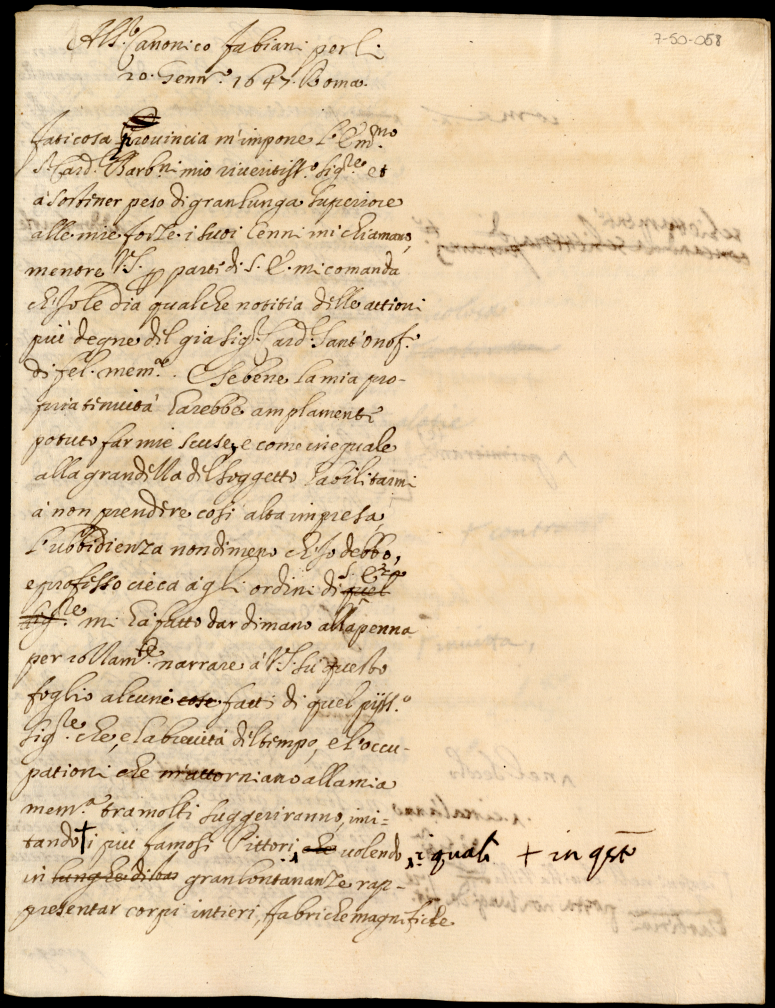 7-50-058
Al S.r Canonico Fabiani per li
20. Genn.o 1647. Roma.
Faticosa Provincia m'impone l'Em.mo
S. Card. Barb.ni mio riveritiss.o Sig.re et
à sostiner peso di gran lunga superiore
alle mie forze i suoi cenni mi chiamano,
mentre V.S. per parti di S. E. mi comanda
ch'Io le dia qualche notitia delle attioni
più degne del già Sig.r Card. Sant'onof.
di fel. mem.a. E se bene la mia pro-
pria tenuità harebbe amplamente
potuto far mie scuse, e come ineguale
alla grandezza del soggetto habilitarmi
à non prendere così alta impresa,
l'ubbidienza nondimeno ch'Io debbo,
e professo cieca à gli ordini di quel S. E.
Sig.re mi hà fatto dar di mano alla penna
per narrare à V.S. sù questo
foglio alcuni cose fatti di quel piiss.o
Sig.re che, e la brevità del tempo, e l'occu-
pationi che m'attorniano alla mia
mem.a tra molti suggeriranno, imi-
tando + i più famosi Pittori, che volendo, i quali + in qsto
in lunghe di gran lontananze rap-
presentar corpi intieri, fabriche magnifiche